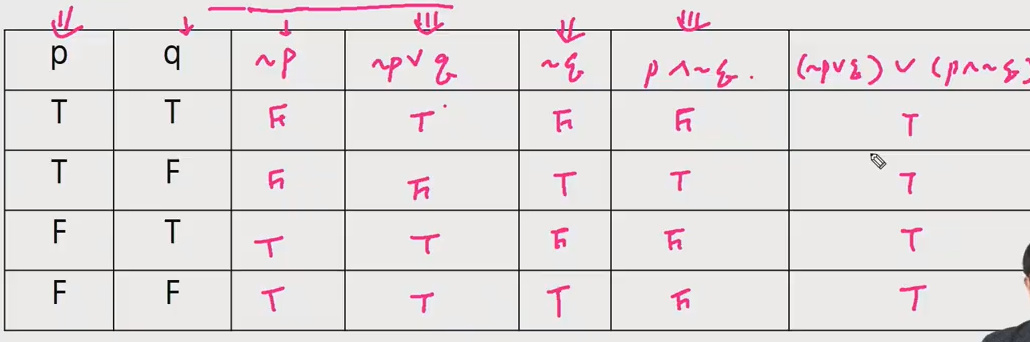 p q ~p ~p∨q ~q p∧~q. (~p∨q) ∨ (p∧~q)
T T F T F F T
T F F F T T T
F T T T F F T
F F T T T F T